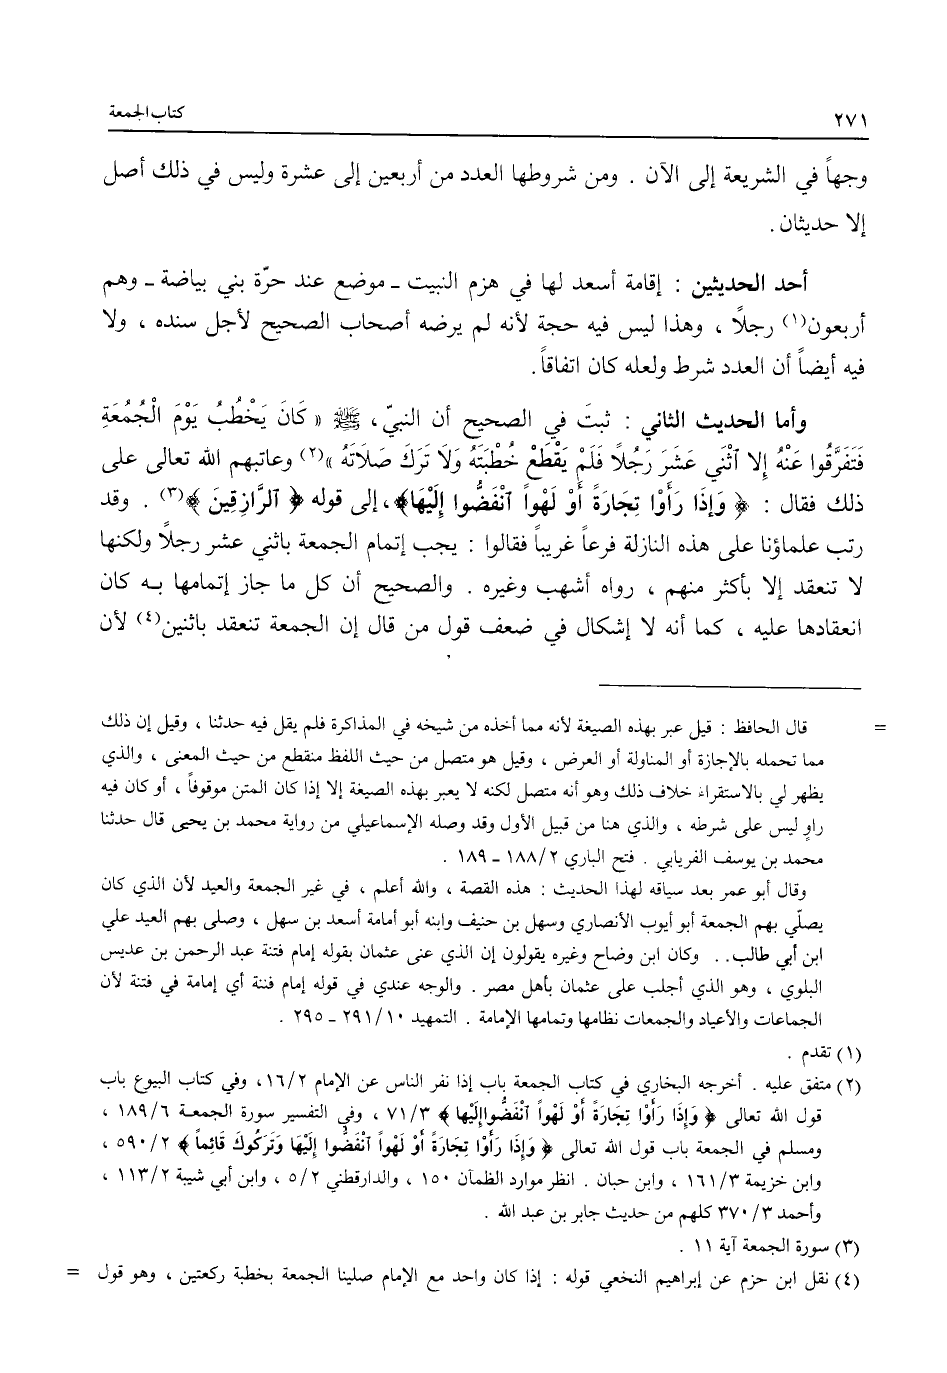 ٢٧١
كتاب الجمعة
وجهاً في الشريعة إلى الآن . ومن شروطها العدد من أربعين إلى عشرة وليس في ذلك أصل
إلا حديثان .
أحد الحديثين : إقامة أسعد لها في هزم النبيت ـ موضع عند حرّة بني بياضة ـ وهم
أربعون(١) رجلاً ، وهذا ليس فيه حجة لأنه لم يرضه أصحاب الصحيح لأجل سنده ، ولا
فيه أيضاً أن العدد شرط ولعله كان اتفاقاً .
وأما الحديث الثاني : ثبتَ في الصحيح أن النبيّ، ﷺ « كَانَ يَخْطُبُ يَوْمَ الْجُمُعَةِ
فَتَفَرَّقُوا عَنْهُ إِلا ٱثْنَي عَشَرَ رَجُلاً فَلَمْ يَقْطَعْ خُطْبَتَهُ وَلَا تَرَكَ صَلَاتَهُ »(٢) وعاتبهم الله تعالى على
ذلك فقال : ﴿ وَإِذَا رَأَوْا تِجَارَةً أَوْ لَهْواً ٱنْفَضُّوا إِلَيْهَا﴾، إلى قوله ﴿ ٱلرَّازِقِينَ ﴾(٣) . وقد
رتب علماؤنا على هذه النازلة فرعاً غريباً فقالوا : يجب إتمام الجمعة باثني عشر رجلاً ولكنها
لا تنعقد إلا بأكثر منهم ، رواه أشهب وغيره . والصحيح أن كل ما جاز إتمامها بـه كان
انعقادها عليه ، كما أنه لا إشكال في ضعف قول من قال إن الجمعة تنعقد باثنين(٤) لأن
= قال الحافظ : قيل عبر بهذه الصيغة لأنه مما أخذه من شيخه في المذاكرة فلم يقل فيه حدثنا ، وقيل إن ذلك
مما تحمله بالإجازة أو المناولة أو العرض ، وقيل هو متصل من حيث اللفظ منقطع من حيث المعنى ، والذي
يظهر لي بالاستقراء خلاف ذلك وهو أنه متصل لكنه لا يعبر بهذه الصيغة إلا إذا كان المتن موقوفاً ، أو كان فيه
راوٍ ليس على شرطه ، والذي هنا من قبيل الأول وقد وصله الإسماعيلي من رواية محمد بن يحيى قال حدثنا
محمد بن يوسف الفريابي . فتح الباري ١٨٨/٢ ـ ١٨٩ .
وقال أبو عمر بعد سياقه لهذا الحديث : هذه القصة ، والله أعلم ، في غير الجمعة والعيد لأن الذي كان
يصلّي بهم الجمعة أبو أيوب الأنصاري وسهل بن حنيف وابنه أبو أمامة أسعد بن سهل ، وصلى بهم العيد علي
ابن أبي طالب. . وكان ابن وضاح وغيره يقولون إن الذي عنى عثمان بقوله إمام فتنة عبد الرحمن بن عديس
البلوي ، وهو الذي أجلب على عثمان بأهل مصر . والوجه عندي في قوله إمام فتنة أي إمامة في فتنة لأن
الجماعات والأعياد والجمعات نظامها وتمامها الإمامة . التمهيد ٢٩١/١٠ ـ ٢٩٥ .
(١) تقدم .
(٢) متفق عليه . أخرجه البخاري في كتاب الجمعة باب إذا نفر الناس عن الإمام ١٦/٢، وفي كتاب البيوع باب
قول الله تعالى ﴿ وَإِذَا رَأَوْا تِجَارَةً أَوْ لَهْواً ٱنْفَضُّوا إِلَيها ﴾ ٧١/٣ ، وفي التفسير سورة الجمعـة ١٨٩/٦ ،
ومسلم في الجمعة باب قول الله تعالى ﴿ وَإِذَا رَأَوْا تِجَارَةً أَوْ لَهْواً ٱنْفَضُّوا إِلَيْهَا وَتَرَكُوكَ قَائِماً ﴾ ٥٩٠/٢ ،
وابن خزيمة ١٦١/٣ ، وابن حبان . انظر موارد الظمآن ١٥٠ ، والدارقطني ٥/٢ ، وابن أبي شيبة ١١٣/٢ ،
وأحمد ٣٧٠/٣ كلهم من حديث جابر بن عبد الله .
(٣) سورة الجمعة آية ١١ .
(٤) نقل ابن حزم عن إبراهيم النخعي قوله : إذا كان واحد مع الإمام صلينا الجمعة بخطبة ركعتين ، وهو قول =